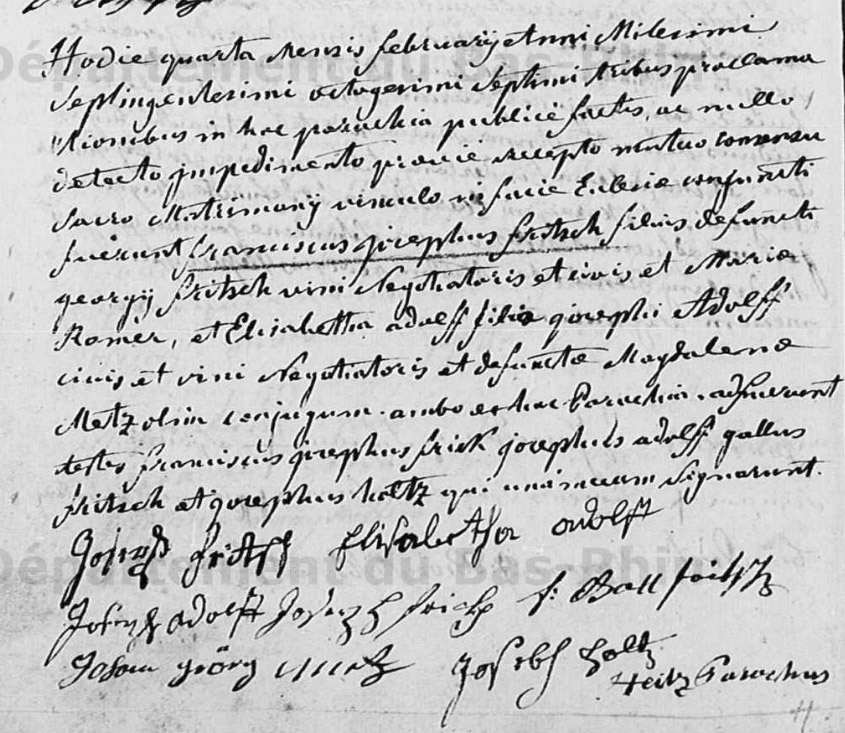 Hodie quarta Mensis februarij Anni Milesimi
Septingentesimi octogesimi Septimi tribus proclama
tionibus in hac parochia publicè factis, ac nullo
detecto impedimento praviè recepto mutuo consensu
sacro Matrimonij vinculo in facie Eclesiæ conjuncti
fuerunt franciscus josephus fritsch filius defuncti
georgij fritsch vini Negotiatoris et civis et Mariæ
Romer, et Elisabetha adolff filia josephi Adolff
civis et vini Negotiatoris et defunctæ Magdalenæ
Metz olim conjugum. ambo ex hac Parochia. adfuerunt
testes franciscus josephus frick josephus adolff gallus
fritsch et josephus holtz qui unà mecum signarunt.
Joseph fritsch Elisabetha adolff
Joseph adolff Joseph frick f: Ball fritsch
görg Metz Joseph Holtz
Parochus
Département du Bas-Rhin
Département du Bas-Rhin